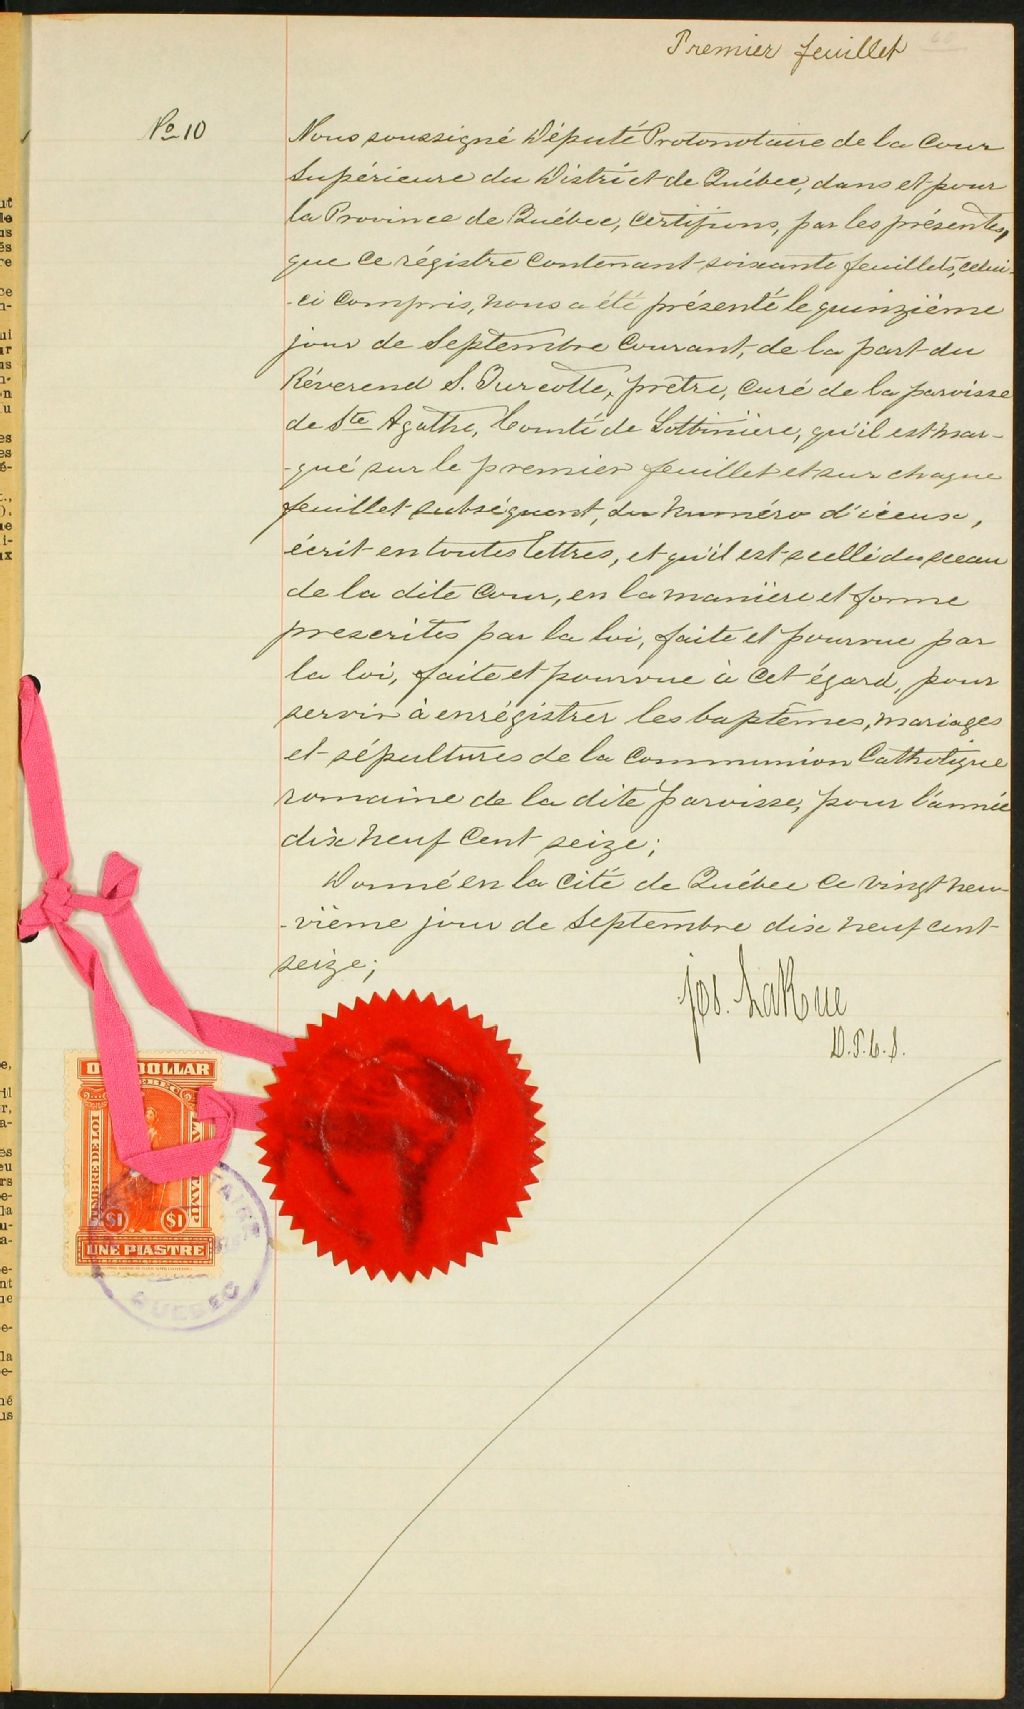 Premier feuillet
No 10
Nous soussigné Député Protonotaire de la Cour
Supérieure du District de Québec, dans et pour
la Province de Québec, certifions, par les présentes,
que ce régistre contenant soixante feuillets, celui-
-ci compris, nous a été présenté le quinzième
jour de Septembre courant, de la part du
Réverend S. Turcotte, prêtre, curé de la paroisse
de Ste Agathe, Comté de Lotbinière, qu'il est mar-
-qué sur le premier feuillet et sur chaque
feuillet subséquent, du numéro d'iceux,
écrit en toutes lettres, et qu'il est scellé du sceau
de la dite Cour, en la manière et forme
prescrites par la loi, faite et pourvue par
la loi, faite et pourvue à cet égard, pour
servir à enrégistrer les baptêmes, mariages
et sépultures de la Communion Catholique
romaine de la dite paroisse, pour l'année
dix neuf cent seize;
Donné en la cité de Québec ce vingt neu-
-vième jour de Septembre dix neuf cent
seize;
Jos. LaRue
D.P.C.S.
DOLLAR
TIMBRE DE LOI
$1 $1
UNE PIASTRE
QUEBEC